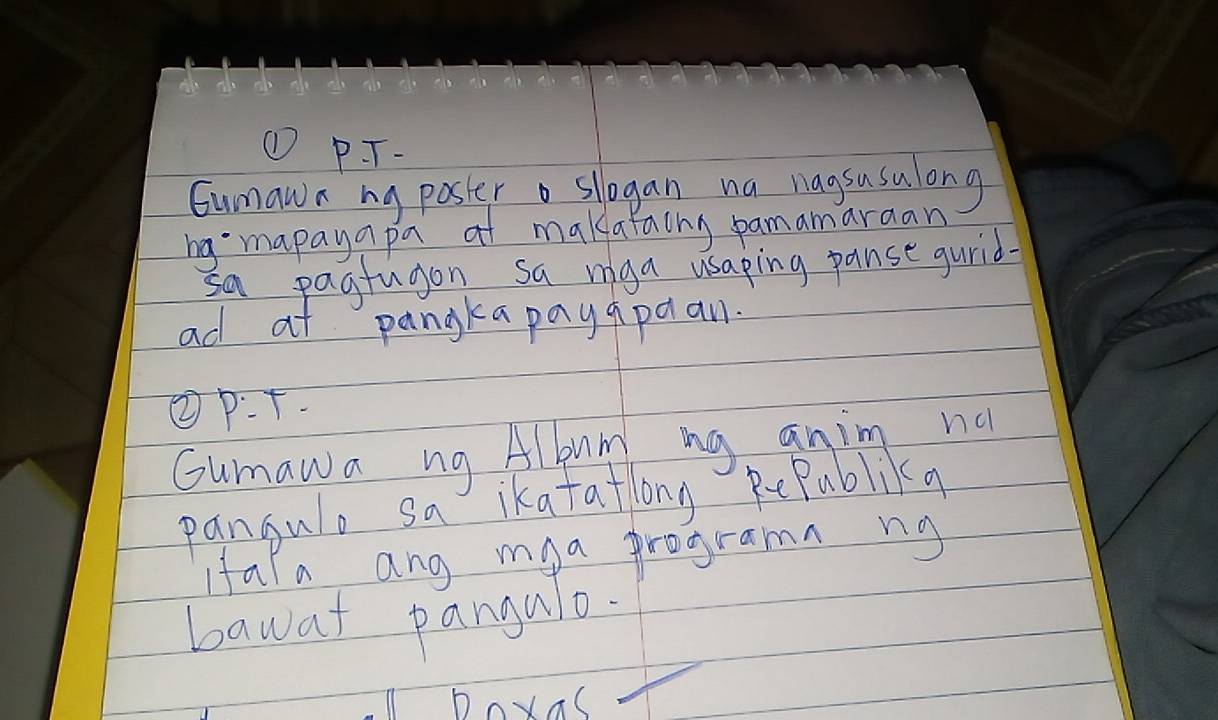 ① P.T-
Gumawa ng poster o slogan na nagsusulong
ng mapayapa at makataong pamamaraan
sa pagtugon sa mga usaping pansegurid-
ad at pangkapayapaan.
② P.T-
Gumawa ng Album ng anim na
pangulo sa ikatatlong RePublika
itala ang mga programa ng
bawat pangulo.
Roxas